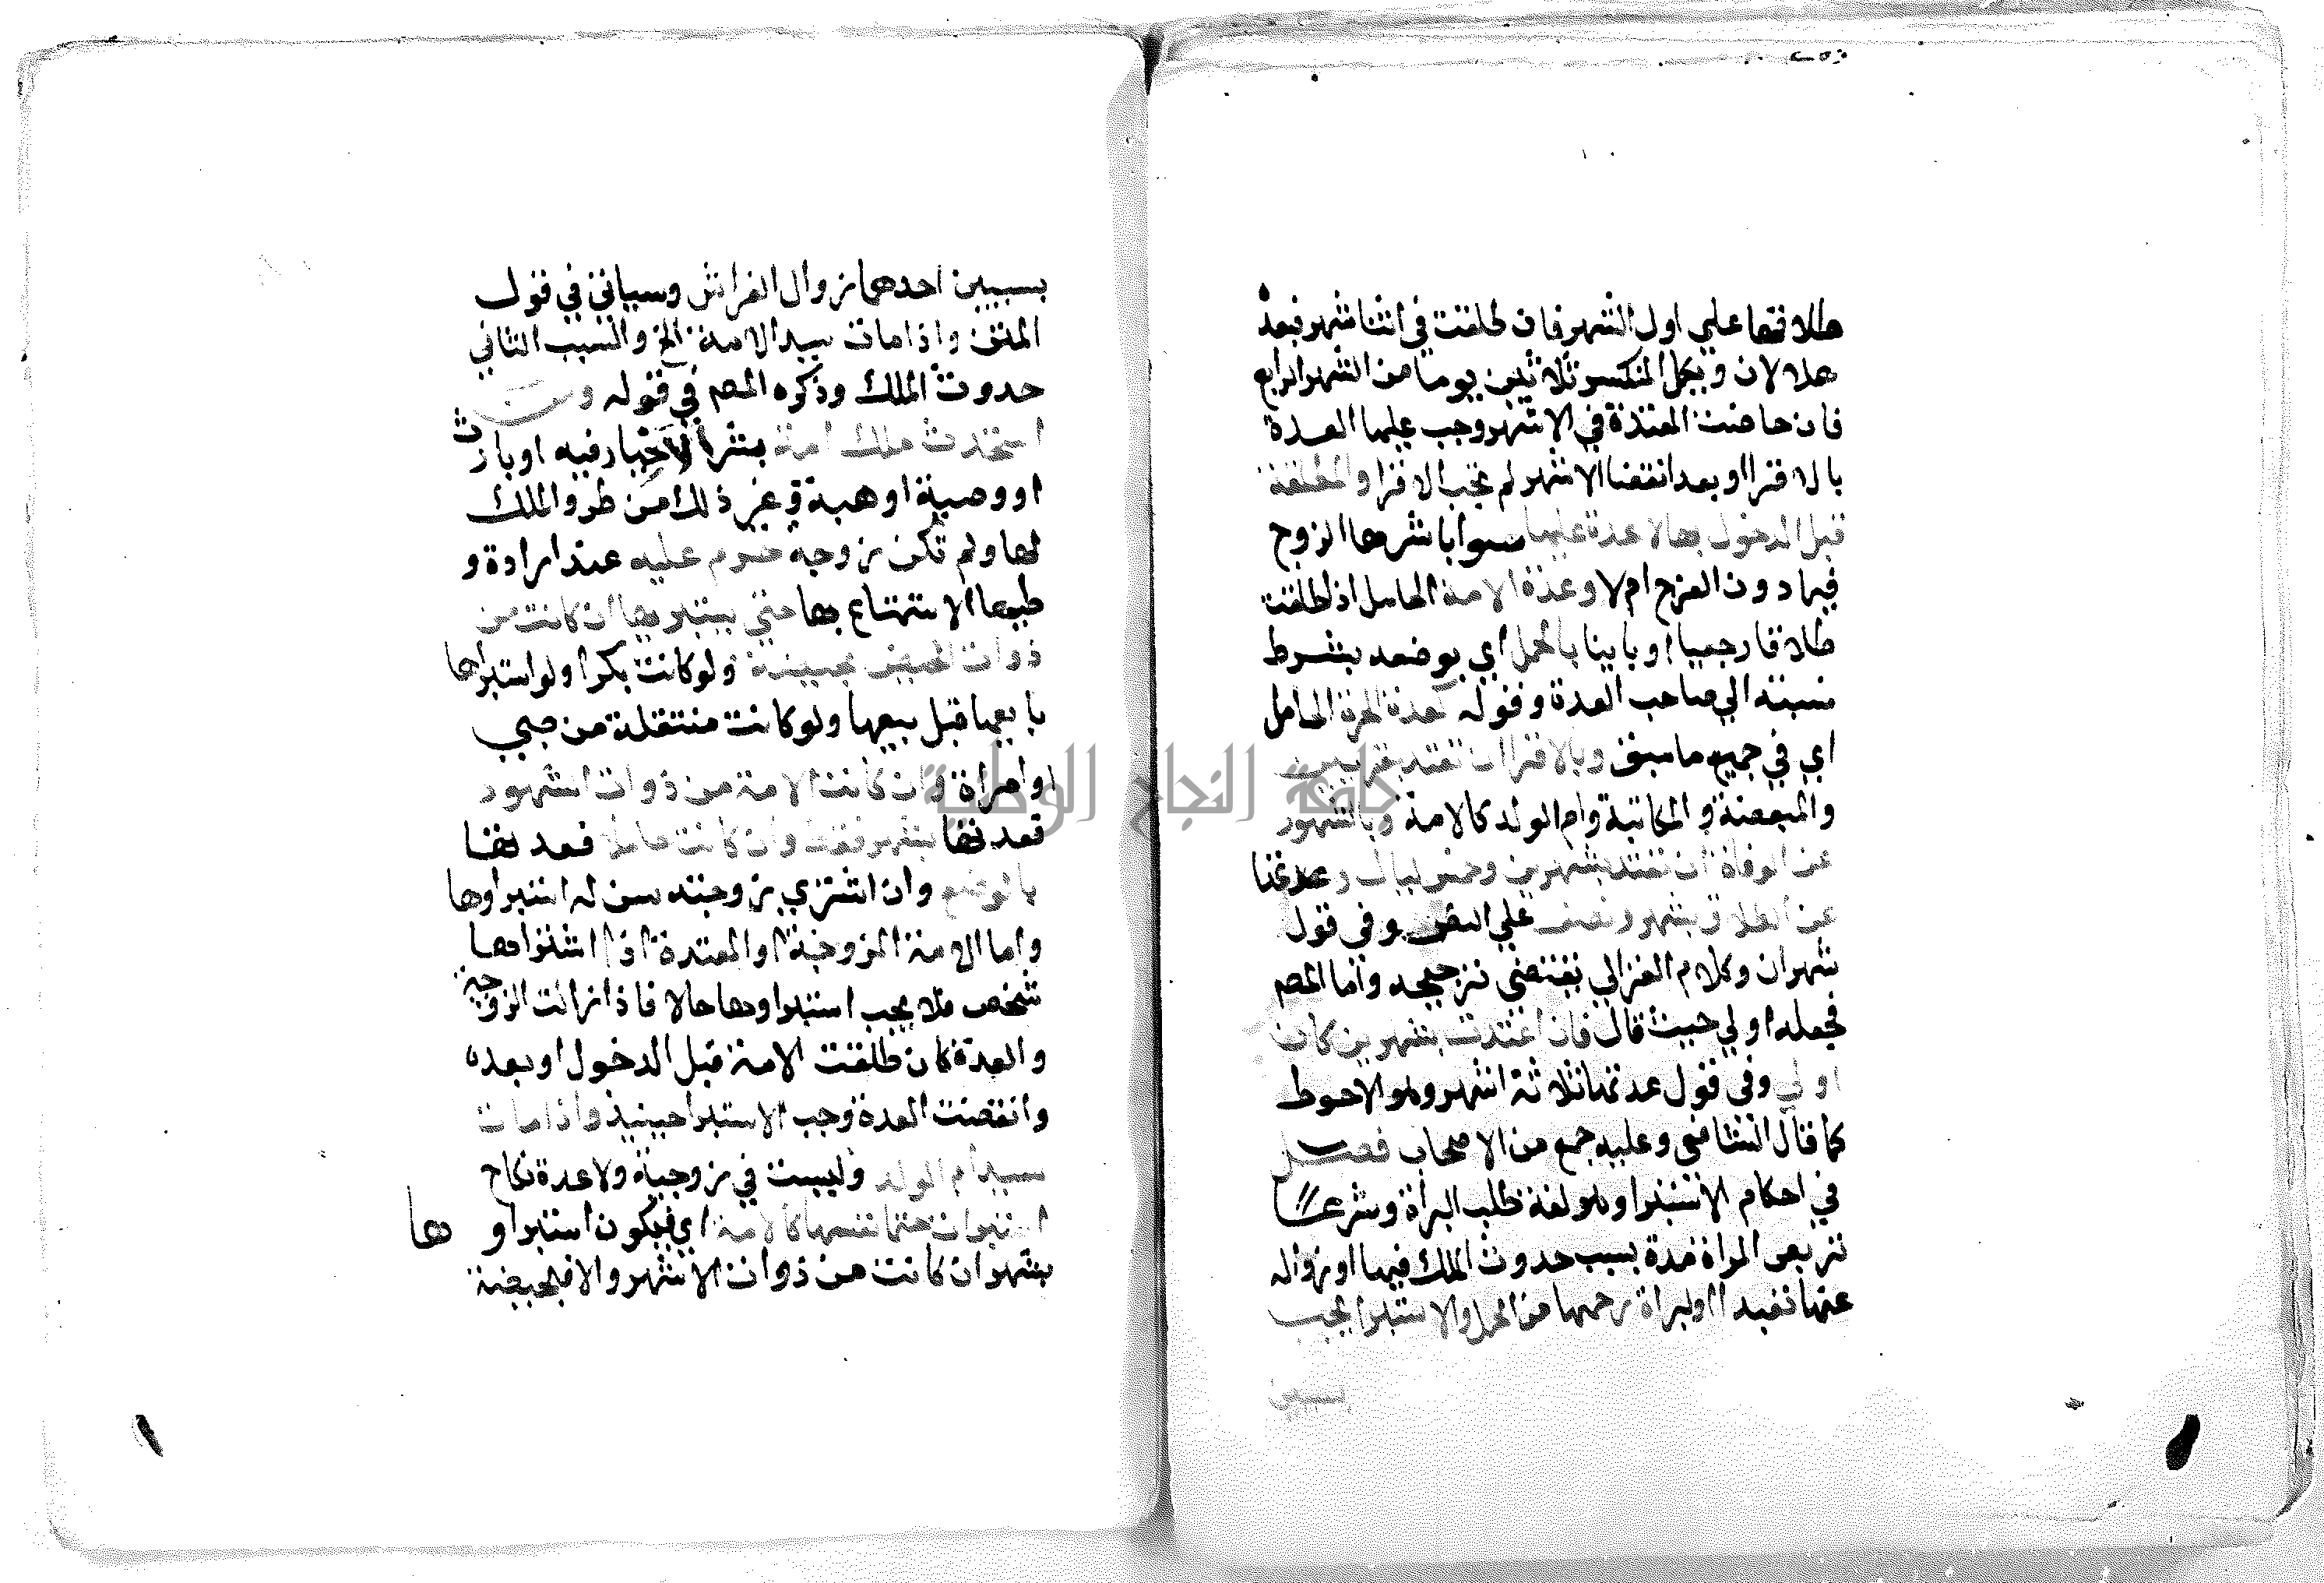 طلاقها علي اول الشهر فان طلقت في اثنا شهر فبعده
هلالان ويكمل المنكسر ثلاثين يوما من الشهر الرابع
فان حاضت المعتدة في الاشهر وجب عليها العدة
بالاقرا او بعد انقضا الاشهر لم تجب الاقرا والمطلقة
قبل الدخول بها لا عدة عليها سوا باشرها الزوج
فيما دون الفرج ام لا وعدة الامة الحامل اذا طلقت
طلاقا رجعيا او باينا بالحمل اي بوضعه بشرط
نسبته الي صاحب العدة وقوله كعدة الحرة الحامل
اي في جميع ما سبق وبالاقرا ان تعتد بقرءين
والمبعضة والمكاتبة وام الولد كالامة وبالشهور
عن الوفاة ان تعتد بشهرين وخمس ليال وعدتها
عن الطلاق بشهر ونصف علي النص وفي قول
شهران وكلام الغزالي يقتضي ترجيحه واما المص
فجعله اولي حيث قال فان اعتدت بشهرين كان
اولي وفي قول عدتها ثلاثة اشهر وهو الاحوط
كما قال الشافعي وعليه جمع من الاصحاب فصل
في احكام الاستبرا وهو لغة طلب البراة وشرعا
تربص المراة مدة بسبب حدوث الملك فيها او زواله
عنها تعبدا او لبراة رحمها من الحمل والاستبرا يجب
بسببين
بسببين احدهما زوال الفراش وسياتي في قول
المتن واذا مات سيد الامة الخ والسبب الثاني
حدوث الملك وذكره المص في قوله ومن
استحدث ملك امة بشرا لا خيار فيه او بارث
او وصية او هبة او غير ذلك من طرق الملك
لها ولم تكن زوجه حرم عليه عند ارادة و
طيها الاستمتاع بها حتي يستبريها ان كانت من
ذوات الحيض بحيضة ولو كانت بكرا ولو استبراها
بايعها قبل بيعها ولو كانت منتقلة من صبي
او امراة وان كانت الامة من ذوات الشهور
فعدتها بشهر فقط وان كانت حاملا فعدتها
بالوضع وان اشتري زوجته سن له استبراوها
واما الامة المزوجة او المعتدة اذا اشتراها
شخص فلا يجب استبراوها حالا فاذا زالت الزوجية
والعدة كان طلقت الامة قبل الدخول او بعده
وانقضت العدة وجب الاستبرا حينيذ واذا مات
سيد ام الولد وليست في زوجية ولا عدة نكاح
استبرات حتما نفسها كالامة اي فيكون استبراوها
بشهر ان كانت من ذوات الاشهر والا فبحيضة
جامعة النجاح الوطنية